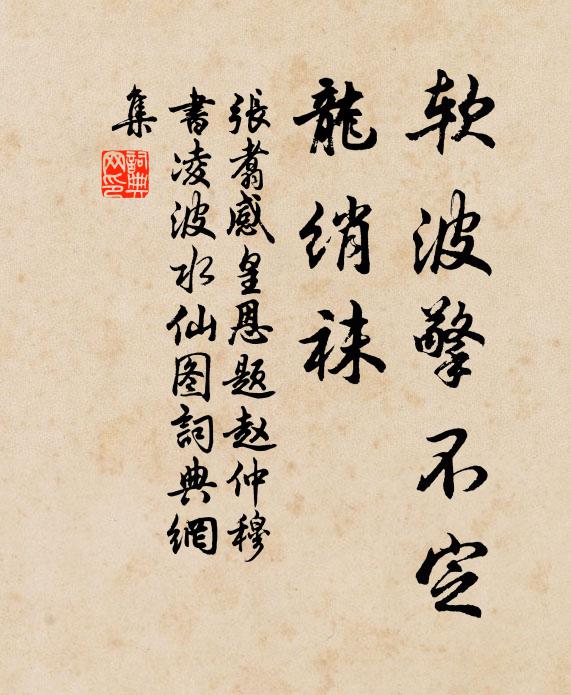 软波擎不定
龍绡袜
張翥感皇恩题赵仲穆
書凌波水仙图詞典網
集
詞典網印